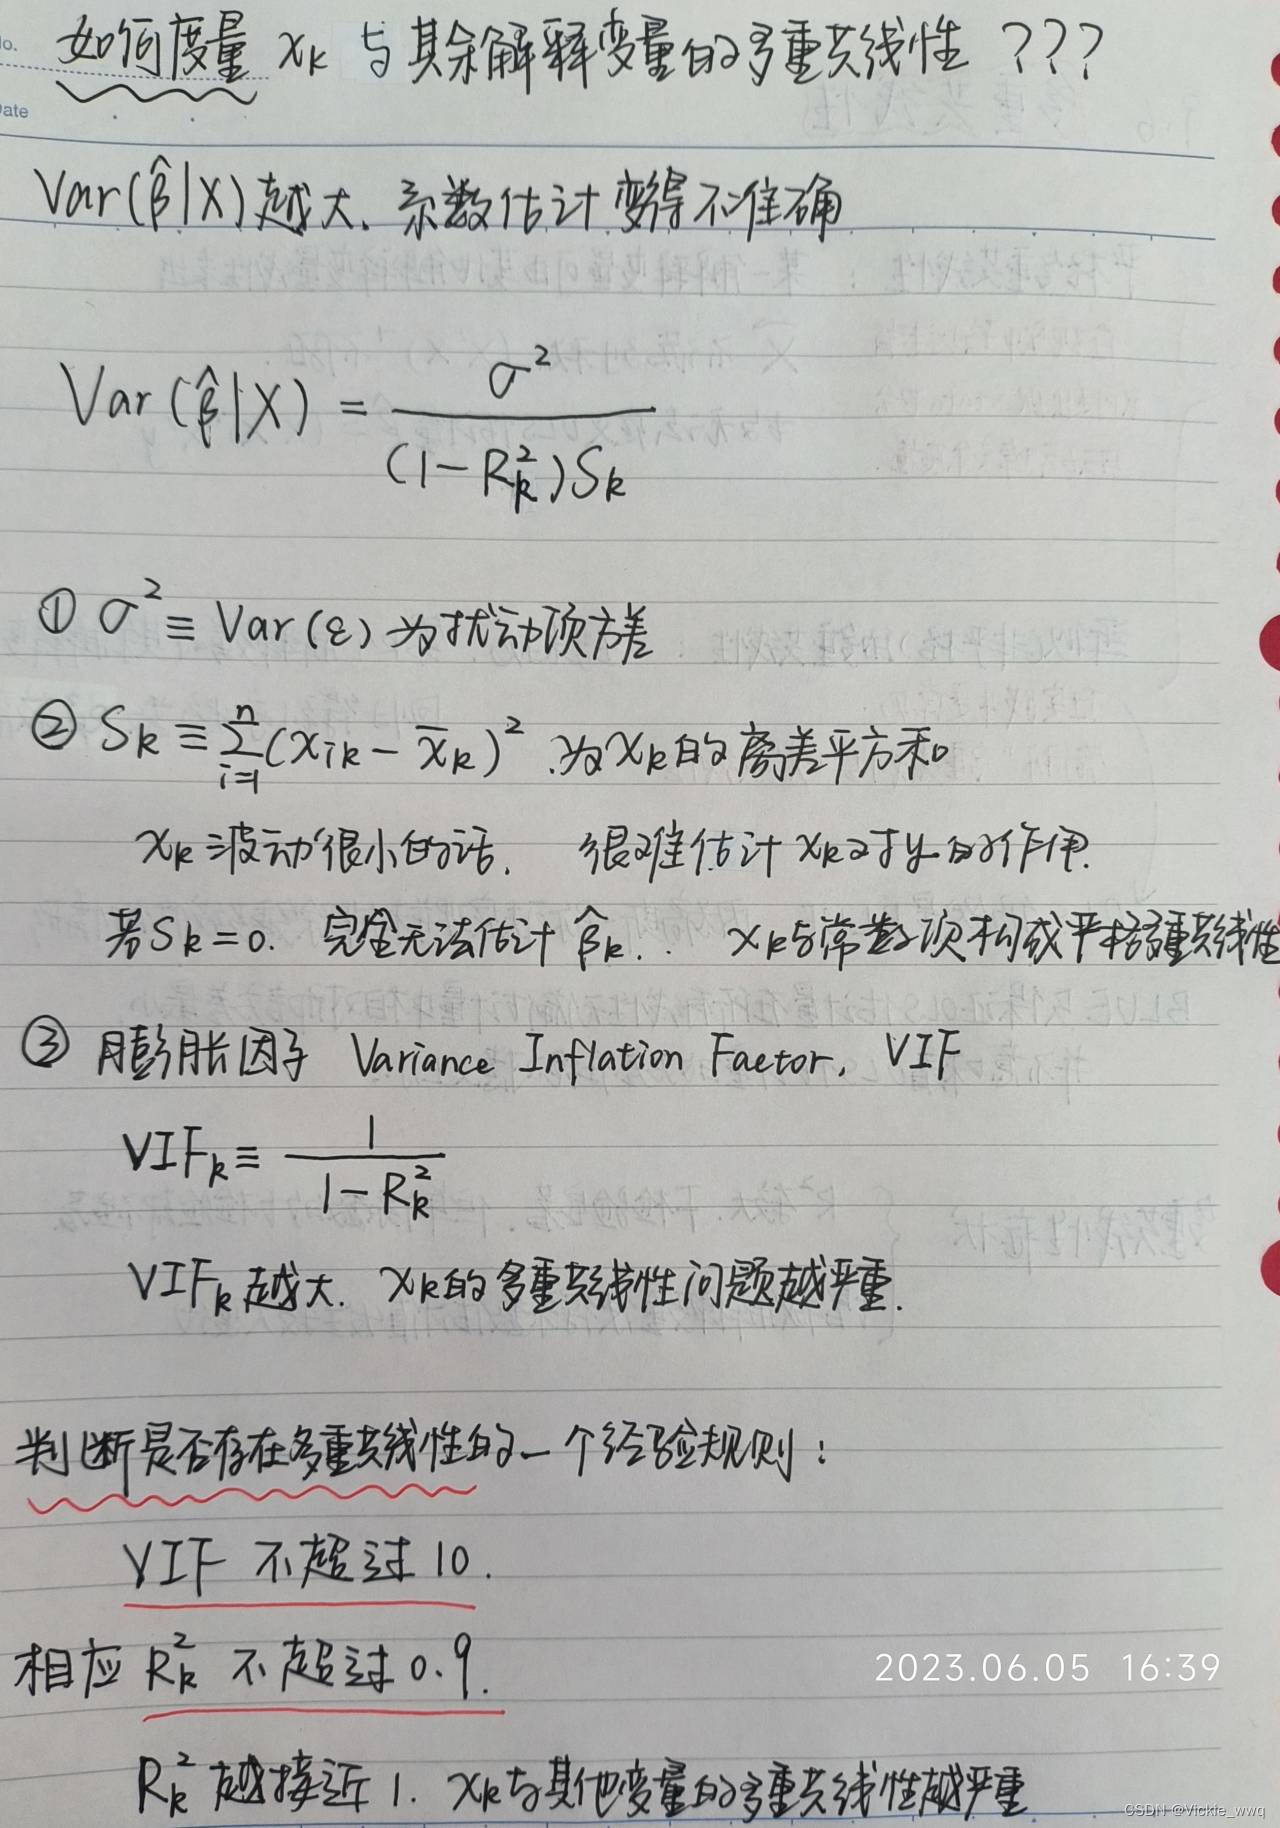 No.
如何度量 xₖ 与其余解释变量的多重共线性 ???
Date
Var(β̂|X)越大, 系数估计变得不准确
Var(β̂|X) = σ² / ((1-Rₖ²)Sₖ)
① σ² ≡ Var(ε) 为扰动项方差
② Sₖ ≡ Σⁿᵢ₌₁(xᵢₖ - x̄ₖ)² 为xₖ的离差平方和
xₖ波动很小的话, 很难估计xₖ对y的作用.
若Sₖ=0. 完全无法估计β̂ₖ.∴ xₖ与常数项构成严格多重共线性
③ 膨胀因子 Variance Inflation Factor, VIF
VIFₖ ≡ 1 / (1-Rₖ²)
VIFₖ越大. xₖ的多重共线性问题越严重.
判断是否存在多重共线性的一个经验规则:
VIF 不超过10.
相应 Rₖ² 不超过0.9.
2023.06.05 16:39
Rₖ² 越接近1. xₖ与其他变量的多重共线性越严重
CSDN @Vickie_wwq